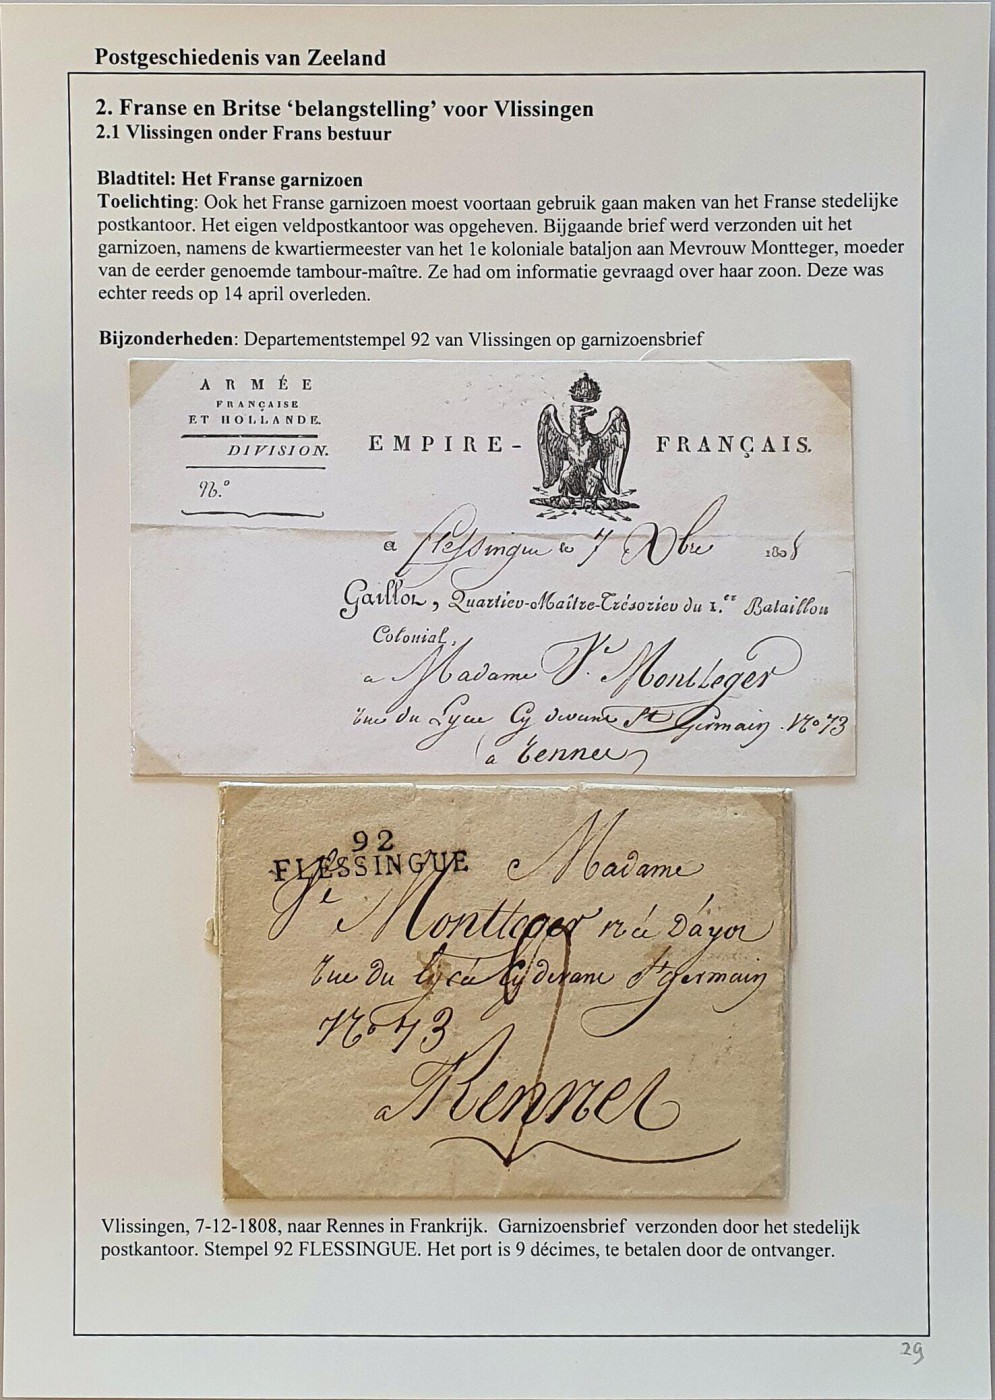 Postgeschiedenis van Zeeland
2. Franse en Britse ‘belangstelling’ voor Vlissingen
2.1 Vlissingen onder Frans bestuur
Bladtitel: Het Franse garnizoen
Toelichting: Ook het Franse garnizoen moest voortaan gebruik gaan maken van het Franse stedelijke
postkantoor. Het eigen veldpostkantoor was opgeheven. Bijgaande brief werd verzonden uit het
garnizoen, namens de kwartiermeester van het 1e koloniale bataljon aan Mevrouw Montteger, moeder
van de eerder genoemde tambour-maître. Ze had om informatie gevraagd over haar zoon. Deze was
echter reeds op 14 april overleden.
Bijzonderheden: Departementstempel 92 van Vlissingen op garnizoensbrief
ARMÉE
FRANÇAISE
ET HOLLANDE.
DIVISION.
N.º
EMPIRE - FRANÇAIS.
a Flessingue le 7 Xbre 1808
Gaillot, Quartier-Maître-Trésorier du 1.er Bataillon
Colonial,
a Madame Ve Montteger
rue du Lycée Cy devant St Germain No 73
a Rennes
92
FLESSINGUE
Madame
Ve Montteger née Dayot
rue du Lycée Cy devant St germain
No 73
9
a Rennes
Vlissingen, 7-12-1808, naar Rennes in Frankrijk. Garnizoensbrief verzonden door het stedelijk
postkantoor. Stempel 92 FLESSINGUE. Het port is 9 décimes, te betalen door de ontvanger.
29